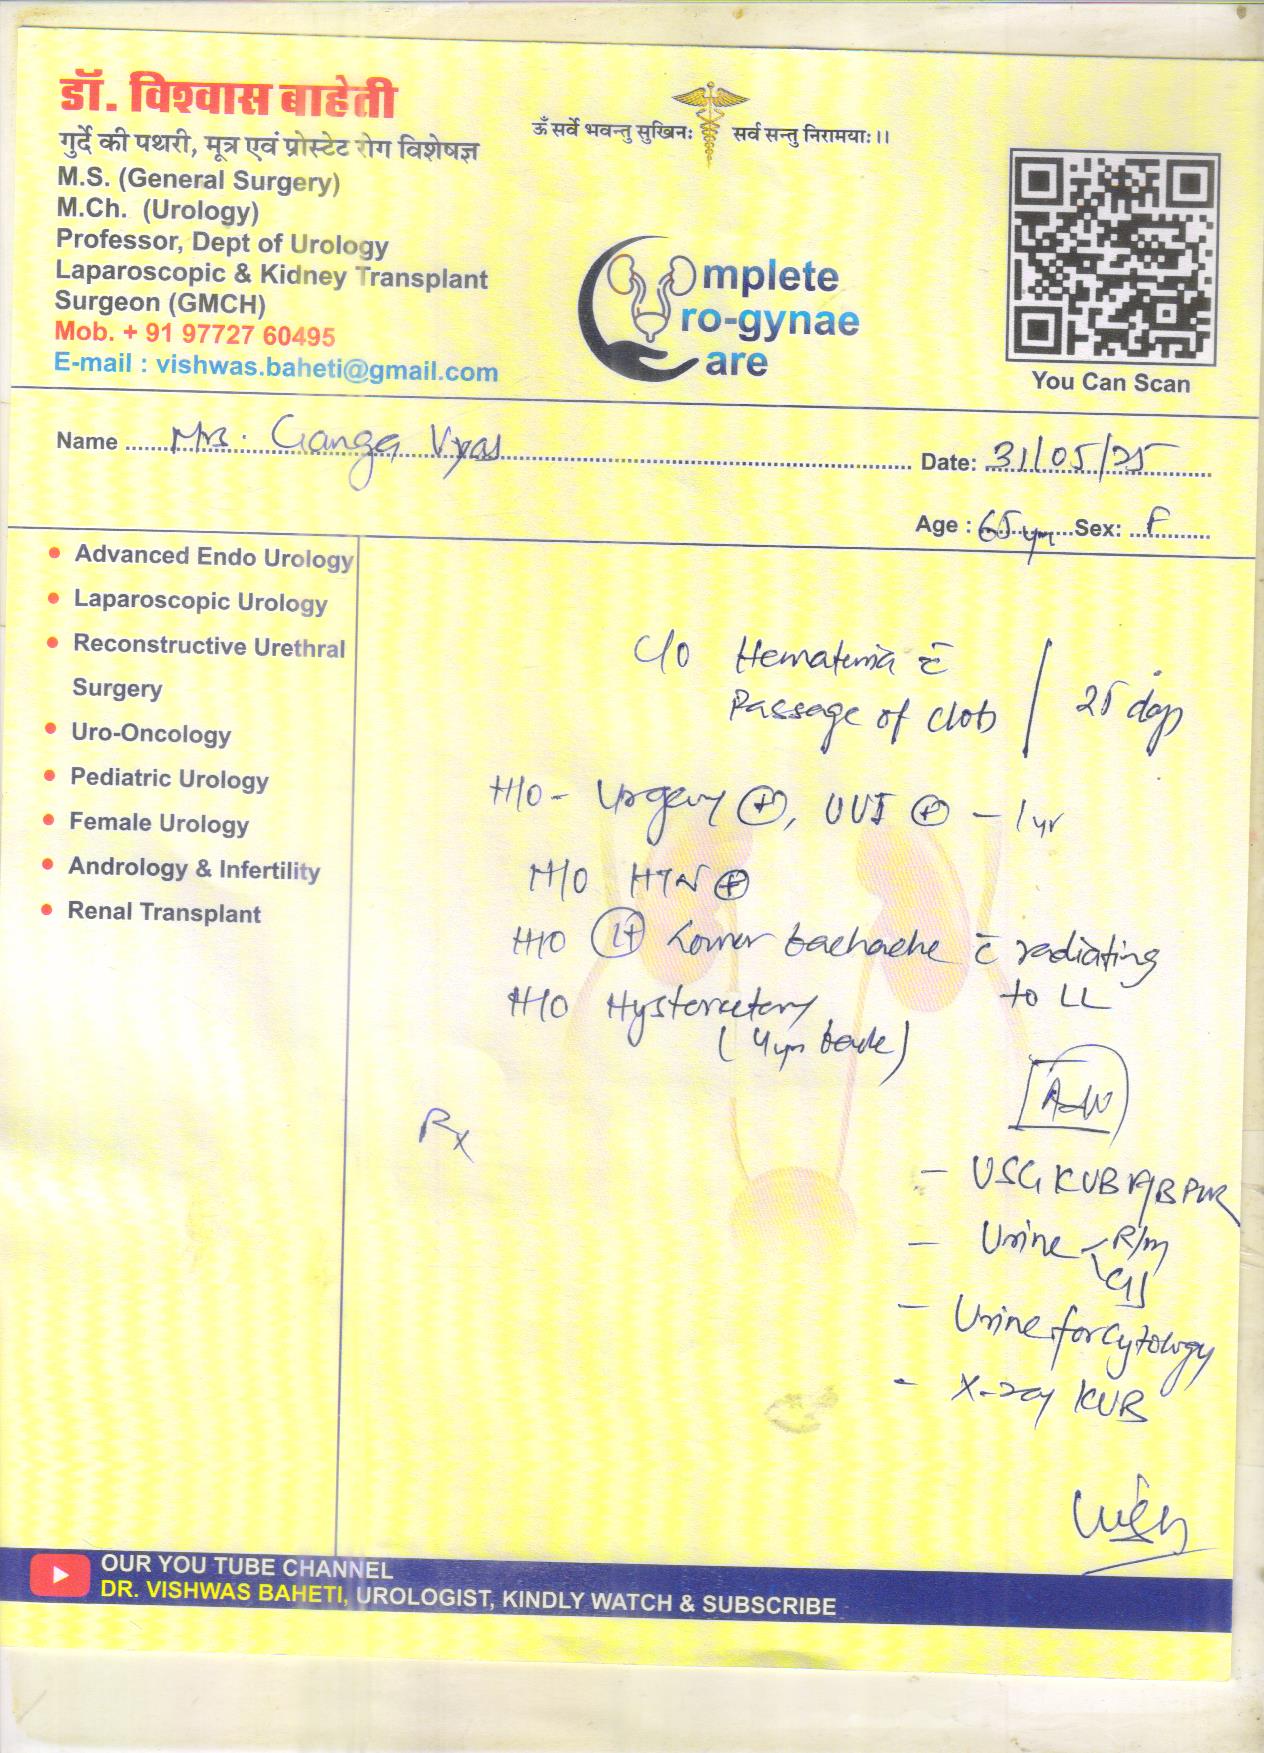 डॉ. विश्वास बाहेती
गुर्दे की पथरी, मूत्र एवं प्रोस्टेट रोग विशेषज्ञ
M.S. (General Surgery)
M.Ch. (Urology)
Professor, Dept of Urology
Laparoscopic & Kidney Transplant
Surgeon (GMCH)
Mob. + 91 97727 60495
E-mail : vishwas.baheti@gmail.com
ॐ सर्वे भवन्तु सुखिनः सर्व सन्तु निरामयाः।।
mplete
ro-gynae
are
You Can Scan
Name Mrs. Ganga Vyas
Date: 31/05/25
Age : 65 yrs Sex: F
• Advanced Endo Urology
• Laparoscopic Urology
• Reconstructive Urethral
Surgery
• Uro-Oncology
• Pediatric Urology
• Female Urology
• Andrology & Infertility
• Renal Transplant
C/O Hematuria c̄
Passage of clots | 25 days
H/O - Urgency ⊕, UUI ⊕ - 1 yr
H/O HTN ⊕
H/O Lt Lower backache c̄ radiating
to LL
H/O Hysterectomy
(4 yrs back)
Rx
Adv
- USG KUB PVR
- Urine R/m
C/S
- Urine for cytology
- X-ray KUB
OUR YOU TUBE CHANNEL
DR. VISHWAS BAHETI, UROLOGIST, KINDLY WATCH & SUBSCRIBE